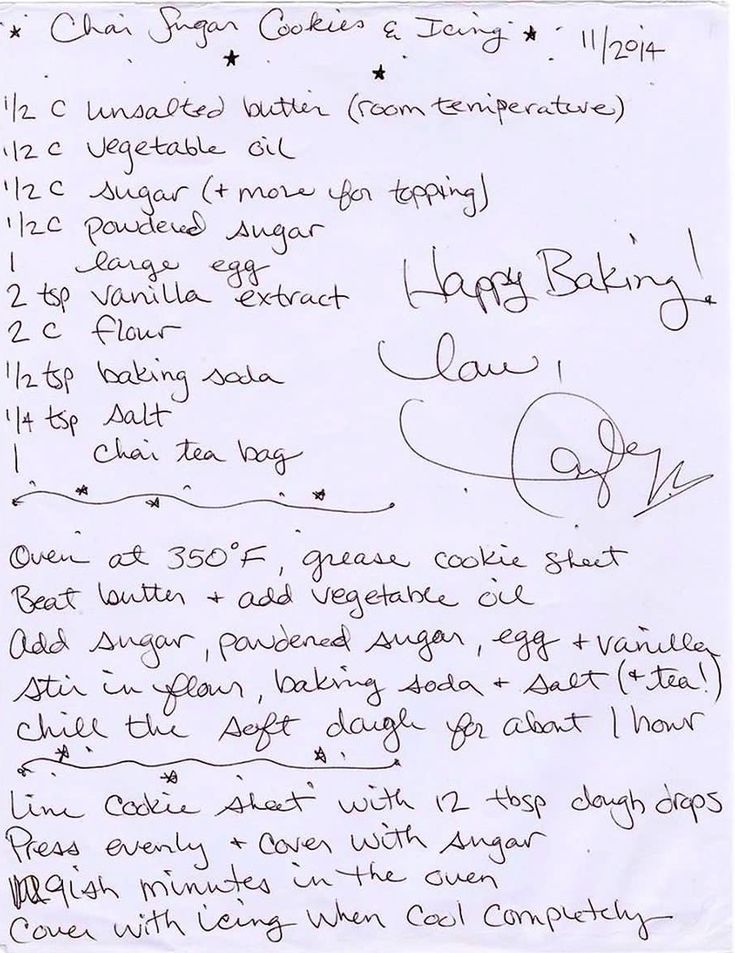 Chai Sugar Cookies & Icing 11/2014
1/2 C unsalted butter (room temperature)
1/2 C vegetable oil
1/2 C sugar (+ more for topping)
1/2 C powdered sugar
1 large egg
2 tsp vanilla extract
2 C flour
1/2 tsp baking soda
1/4 tsp salt
1 chai tea bag
Happy Baking!
Oven at 350°F, grease cookie sheet
Beat butter + add vegetable oil
Add sugar, powdered sugar, egg + vanilla
Stir in flour, baking soda + salt (+ tea!)
Chill the soft dough for about 1 hour
Line cookie sheet with 12 tbsp dough drops
Press evenly + cover with sugar
9ish minutes in the oven
Cover with icing when cool completely